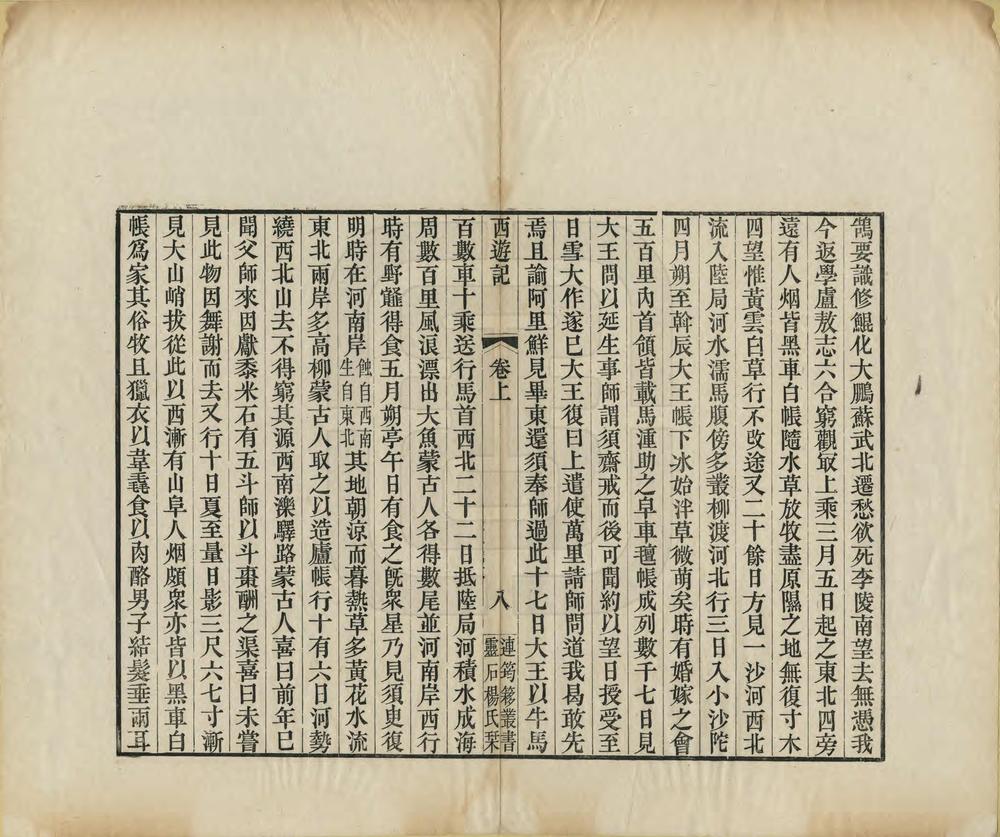 鵠要識修鯤化大鵬蘇武北遷愁欲死李陵南望去無憑我
今返學盧敖志六合窮觀㝡上乘三月五日起之東北四旁
遠有人烟皆黑車白帳隨水草放牧盡原隰之地無復寸木
四望惟黃雲白草行不改途又二十餘日方見一沙河西北
流入陸局河水濡馬腹傍多叢柳渡河北行三日入小沙陀
四月朔至斡辰大王帳下冰始泮草微萌矣時有婚嫁之會
五百里內首領皆載馬湩助之皁車氊帳成列數千七日見
大王問以延生事師謂須齋戒而後可聞約以望日授受至
日雪大作遂已大王復曰上遣使萬里請師問道我曷敢先
焉且諭阿里鮮見畢東還須奉師過此十七日大王以牛馬
西遊記
卷上
八
連筠簃叢書
靈石楊氏栞
百數車十乘送行馬首西北二十二日抵陸局河積水成海
周數百里風浪漂出大魚蒙古人各得數尾並河南岸西行
時有野薤得食五月朔亭午日有食之旣衆星乃見須臾復
明時在河南岸蝕自西南生自東北其地朝涼而暮熱草多黃花水流
東北兩岸多高柳蒙古人取之以造廬帳行十有六日河勢
繞西北山去不得窮其源西南濼驛路蒙古人喜曰前年已
聞父師來因獻黍米石有五斗師以斗棗酬之渠喜曰未嘗
見此物因舞謝而去又行十日夏至量日影三尺六七寸漸
見大山峭拔從此以西漸有山阜人烟頗衆亦皆以黑車白
帳爲家其俗牧且獵衣以韋毳食以肉酪男子結髮垂兩耳